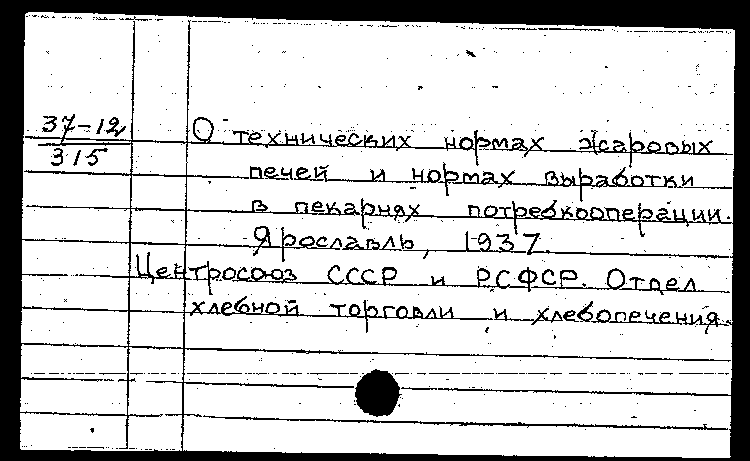 37-12
315
О технических нормах жаровых
печей и нормах выработки
в пекарнях потребкооперации.
Ярославль, 1937.
Центросоюз СССР и РСФСР. Отдел
хлебной торговли и хлебопечения.